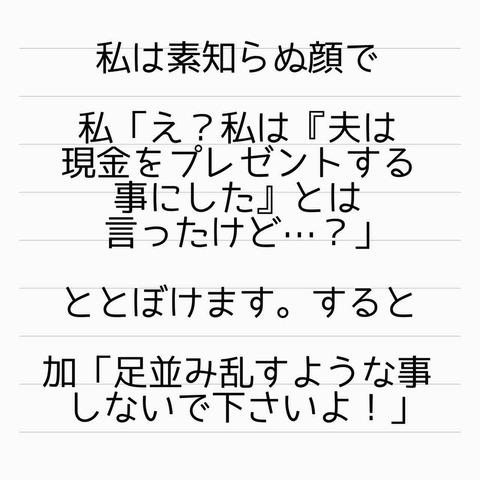 私は素知らぬ顔で
私「え？私は『夫は
現金をプレゼントする
事にした』とは
言ったけど…？」
ととぼけます。すると
加「足並み乱すような事
しないで下さいよ！」